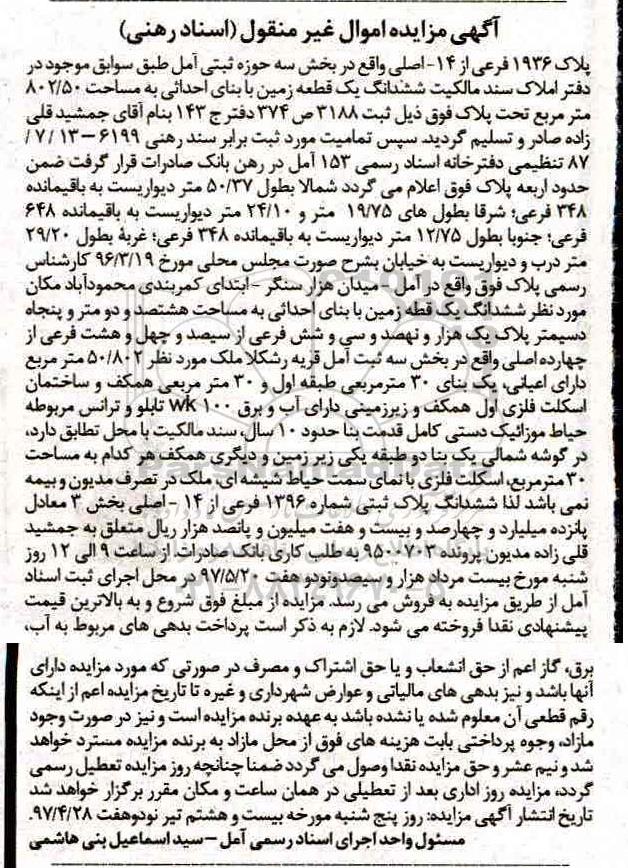 آگهی مزایده اموال غیر منقول (اسناد رهنی)
پلاک ۱۹۳۶ فرعی از ۱۴- اصلی واقع در بخش سه حوزه ثبتی آمل طبق سوابق موجود در
دفتر املاک سند مالکیت ششدانگ یک قطعه زمین با بنای احداثی به مساحت ۸۰۲/۵۰
متر مربع تحت پلاک فوق ذیل ثبت ۳۱۸۸ ص ۳۷۴ دفتر ج ۱۴۳ بنام آقای جمشید قلی
زاده صادر و تسلیم گردید. سپس تمامیت مورد ثبت برابر سند رهنی ۶۱۹۹-۱۳ / ۷ /
۸۷ تنظیمی دفترخانه اسناد رسمی ۱۵۳ آمل در رهن بانک صادرات قرار گرفت ضمن
حدود اربعه پلاک فوق اعلام می گردد شمالا بطول ۵۰/۳۷ متر دیواریست به باقیمانده
۳۴۸ فرعی؛ شرقا بطول های ۱۹/۷۵ متر و ۲۴/۱۰ متر دیواریست به باقیمانده ۶۴۸
فرعی؛ جنوبا بطول ۱۲/۷۵ متر دیواریست به باقیمانده ۳۴۸ فرعی؛ غربهٔ بطول ۲۹/۲۰
متر درب و دیواریست به خیابان بشرح صورت مجلس محلی مورخ ۹۶/۳/۱۹ کارشناس
رسمی پلاک فوق واقع در آمل - میدان هزار سنگر - ابتدای کمربندی محمودآباد مکان
مورد نظر ششدانگ یک قطه زمین با بنای احداثی به مساحت هشتصد و دو متر و پنجاه
دسیمتر پلاک یک هزار و نهصد و سی و شش فرعی از سیصد و چهل و هشت فرعی از
چهارده اصلی واقع در بخش سه ثبت آمل قریه رشکلا ملک مورد نظر ۵۰/۸۰۲ متر مربع
دارای اعیانی، یک بنای ۳۰ مترمربعی طبقه اول و ۳۰ متر مربعی همکف و ساختمان
اسکلت فلزی اول همکف و زیرزمینی دارای آب و برق ۱۰۰ wk تابلو و ترانس مربوطه
حیاط موزائیک دستی کامل قدمت بنا حدود ۱۰ سال، سند مالکیت با محل تطابق دارد،
در گوشه شمالی یک بنا دو طبقه یکی زیر زمین و دیگری همکف هر کدام به مساحت
۳۰ مترمربع، اسکلت فلزی با نمای سمت حیاط شیشه ای، ملک در تصرف مدیون و بیمه
نمی باشد لذا ششدانگ پلاک ثبتی شماره ۱۳۹۶ فرعی از ۱۴ - اصلی بخش ۳ معادل
پانزده میلیارد و چهارصد و بیست و هفت میلیون و پانصد هزار ریال متعلق به جمشید
قلی زاده مدیون پرونده ۹۵۰۰۷۰۳ به طلب کاری بانک صادرات. از ساعت ۹ الی ۱۲ روز
شنبه مورخ بیست مرداد هزار و سیصدونودو هفت ۹۷/۵/۲۰ در محل اجرای ثبت اسناد
آمل از طریق مزایده به فروش می رسد. مزایده از مبلغ فوق شروع و به بالاترین قیمت
پیشنهادی نقدا فروخته می شود. لازم به ذکر است پرداخت بدهی های مربوط به آب،
برق، گاز اعم از حق انشعاب و یا حق اشتراک و مصرف در صورتی که مورد مزایده دارای
آنها باشد و نیز بدهی های مالیاتی و عوارض شهرداری و غیره تا تاریخ مزایده اعم از اینکه
رقم قطعی آن معلوم شده یا نشده باشد به عهده برنده مزایده است و نیز در صورت وجود
مازاد، وجوه پرداختی بابت هزینه های فوق از محل مازاد به برنده مزایده مسترد خواهد
شد و نیم عشر و حق مزایده نقدا وصول می گردد ضمنا چنانچه روز مزایده تعطیل رسمی
گردد، مزایده روز اداری بعد از تعطیلی در همان ساعت و مکان مقرر برگزار خواهد شد
تاریخ انتشار آگهی مزایده: روز پنج شنبه مورخه بیست و هشتم تیر نودوهفت ۹۷/۴/۲۸.
مسئول واحد اجرای اسناد رسمی آمل - سید اسماعیل بنی هاشمی